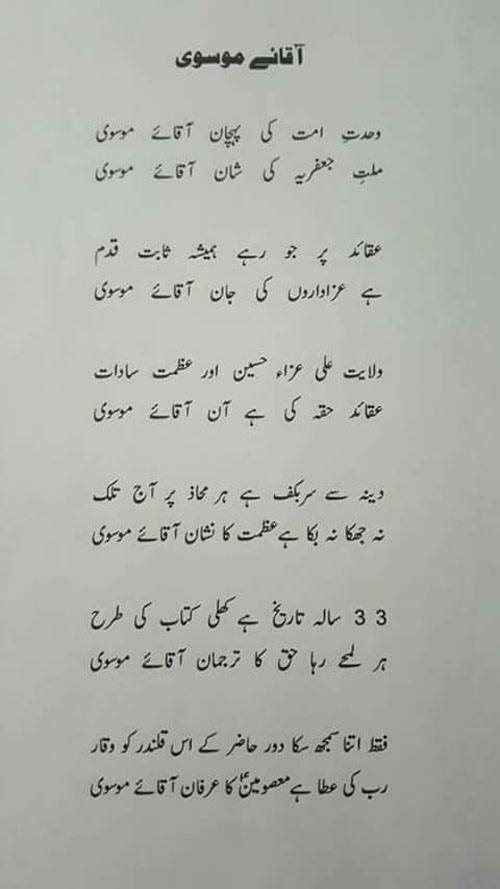 آقائے موسوی
وحدتِ امت کی پہچان آقائے موسوی
ملتِ جعفریہ کی شان آقائے موسوی
عقائد پر جو رہے ہمیشہ ثابت قدم
ہے عزاداروں کی جان آقائے موسوی
ولایت علی عزاء حسین اور عظمت سادات
عقائد حقہ کی ہے آن آقائے موسوی
دینہ سے سربکف ہے ہر محاذ پر آج تلک
نہ جھکا نہ بکا ہے عظمت کا نشان آقائے موسوی
33 سالہ تاریخ ہے کھلی کتاب کی طرح
ہر لمحے رہا حق کا ترجمان آقائے موسوی
فقط اتنا سمجھ سکا دور حاضر کے اس قلندر کو وقار
رب کی عطا ہے معصومینؑ کا عرفان آقائے موسوی